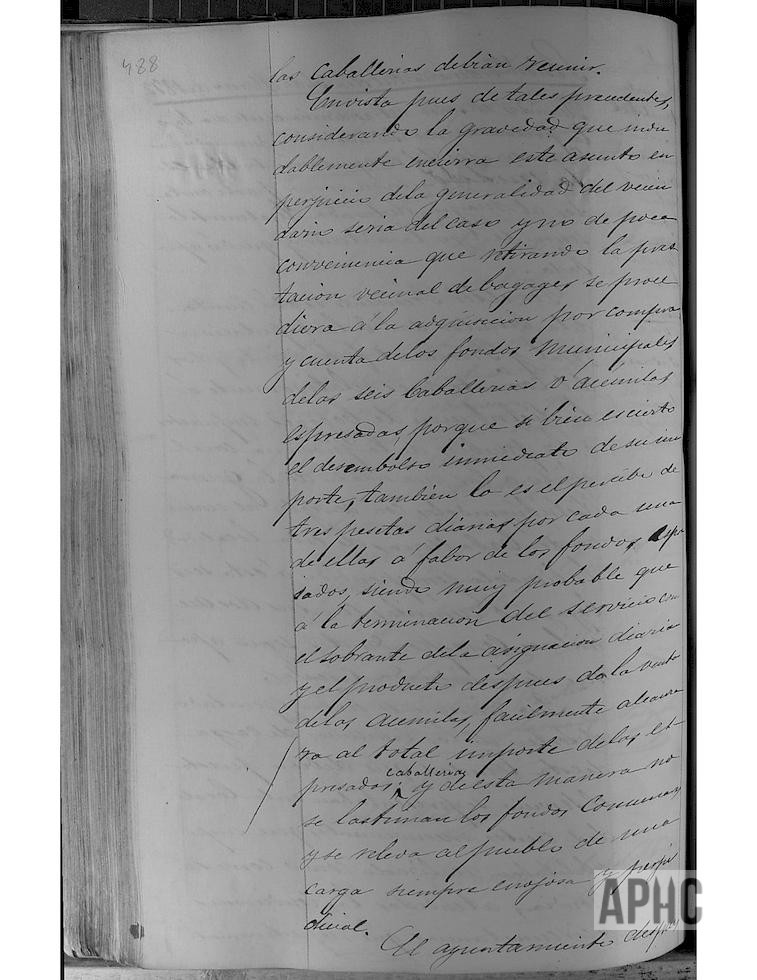 488
las caballerias debian reunir.
En vista pues de tales precedentes,
considerando la gravedad que indu
dablemente encierra este asunto en
perjuicio de la generalidad del vecin
dario seria del caso y no de poca
conveniencia que retirando la pres
tacion vecinal de bagages se proce
diera á la adquisicion por compra
y cuenta de los fondos municipales
de las seis Caballerias ó acémilas
espresadas, porque si bien es cierto
el desembolso inmediato de su im
porte, tambien lo es el percibo de
tres pesetas diarias por cada una
de ellas á fabor de los fondos espre
sados, siendo muy probable que
á la terminacion del servicio con
el sobrante de la asignacion diaria
y el producto despues de la venta
de las acemilas, facilmente alcanza
ra al total importe de las es
presadas caballerias y de esta manera no
se lastiman los fondos Comunes,
y se releva al pueblo de una
carga siempre enojosa y perju
dicial.
El ayuntamiento despues
APHC